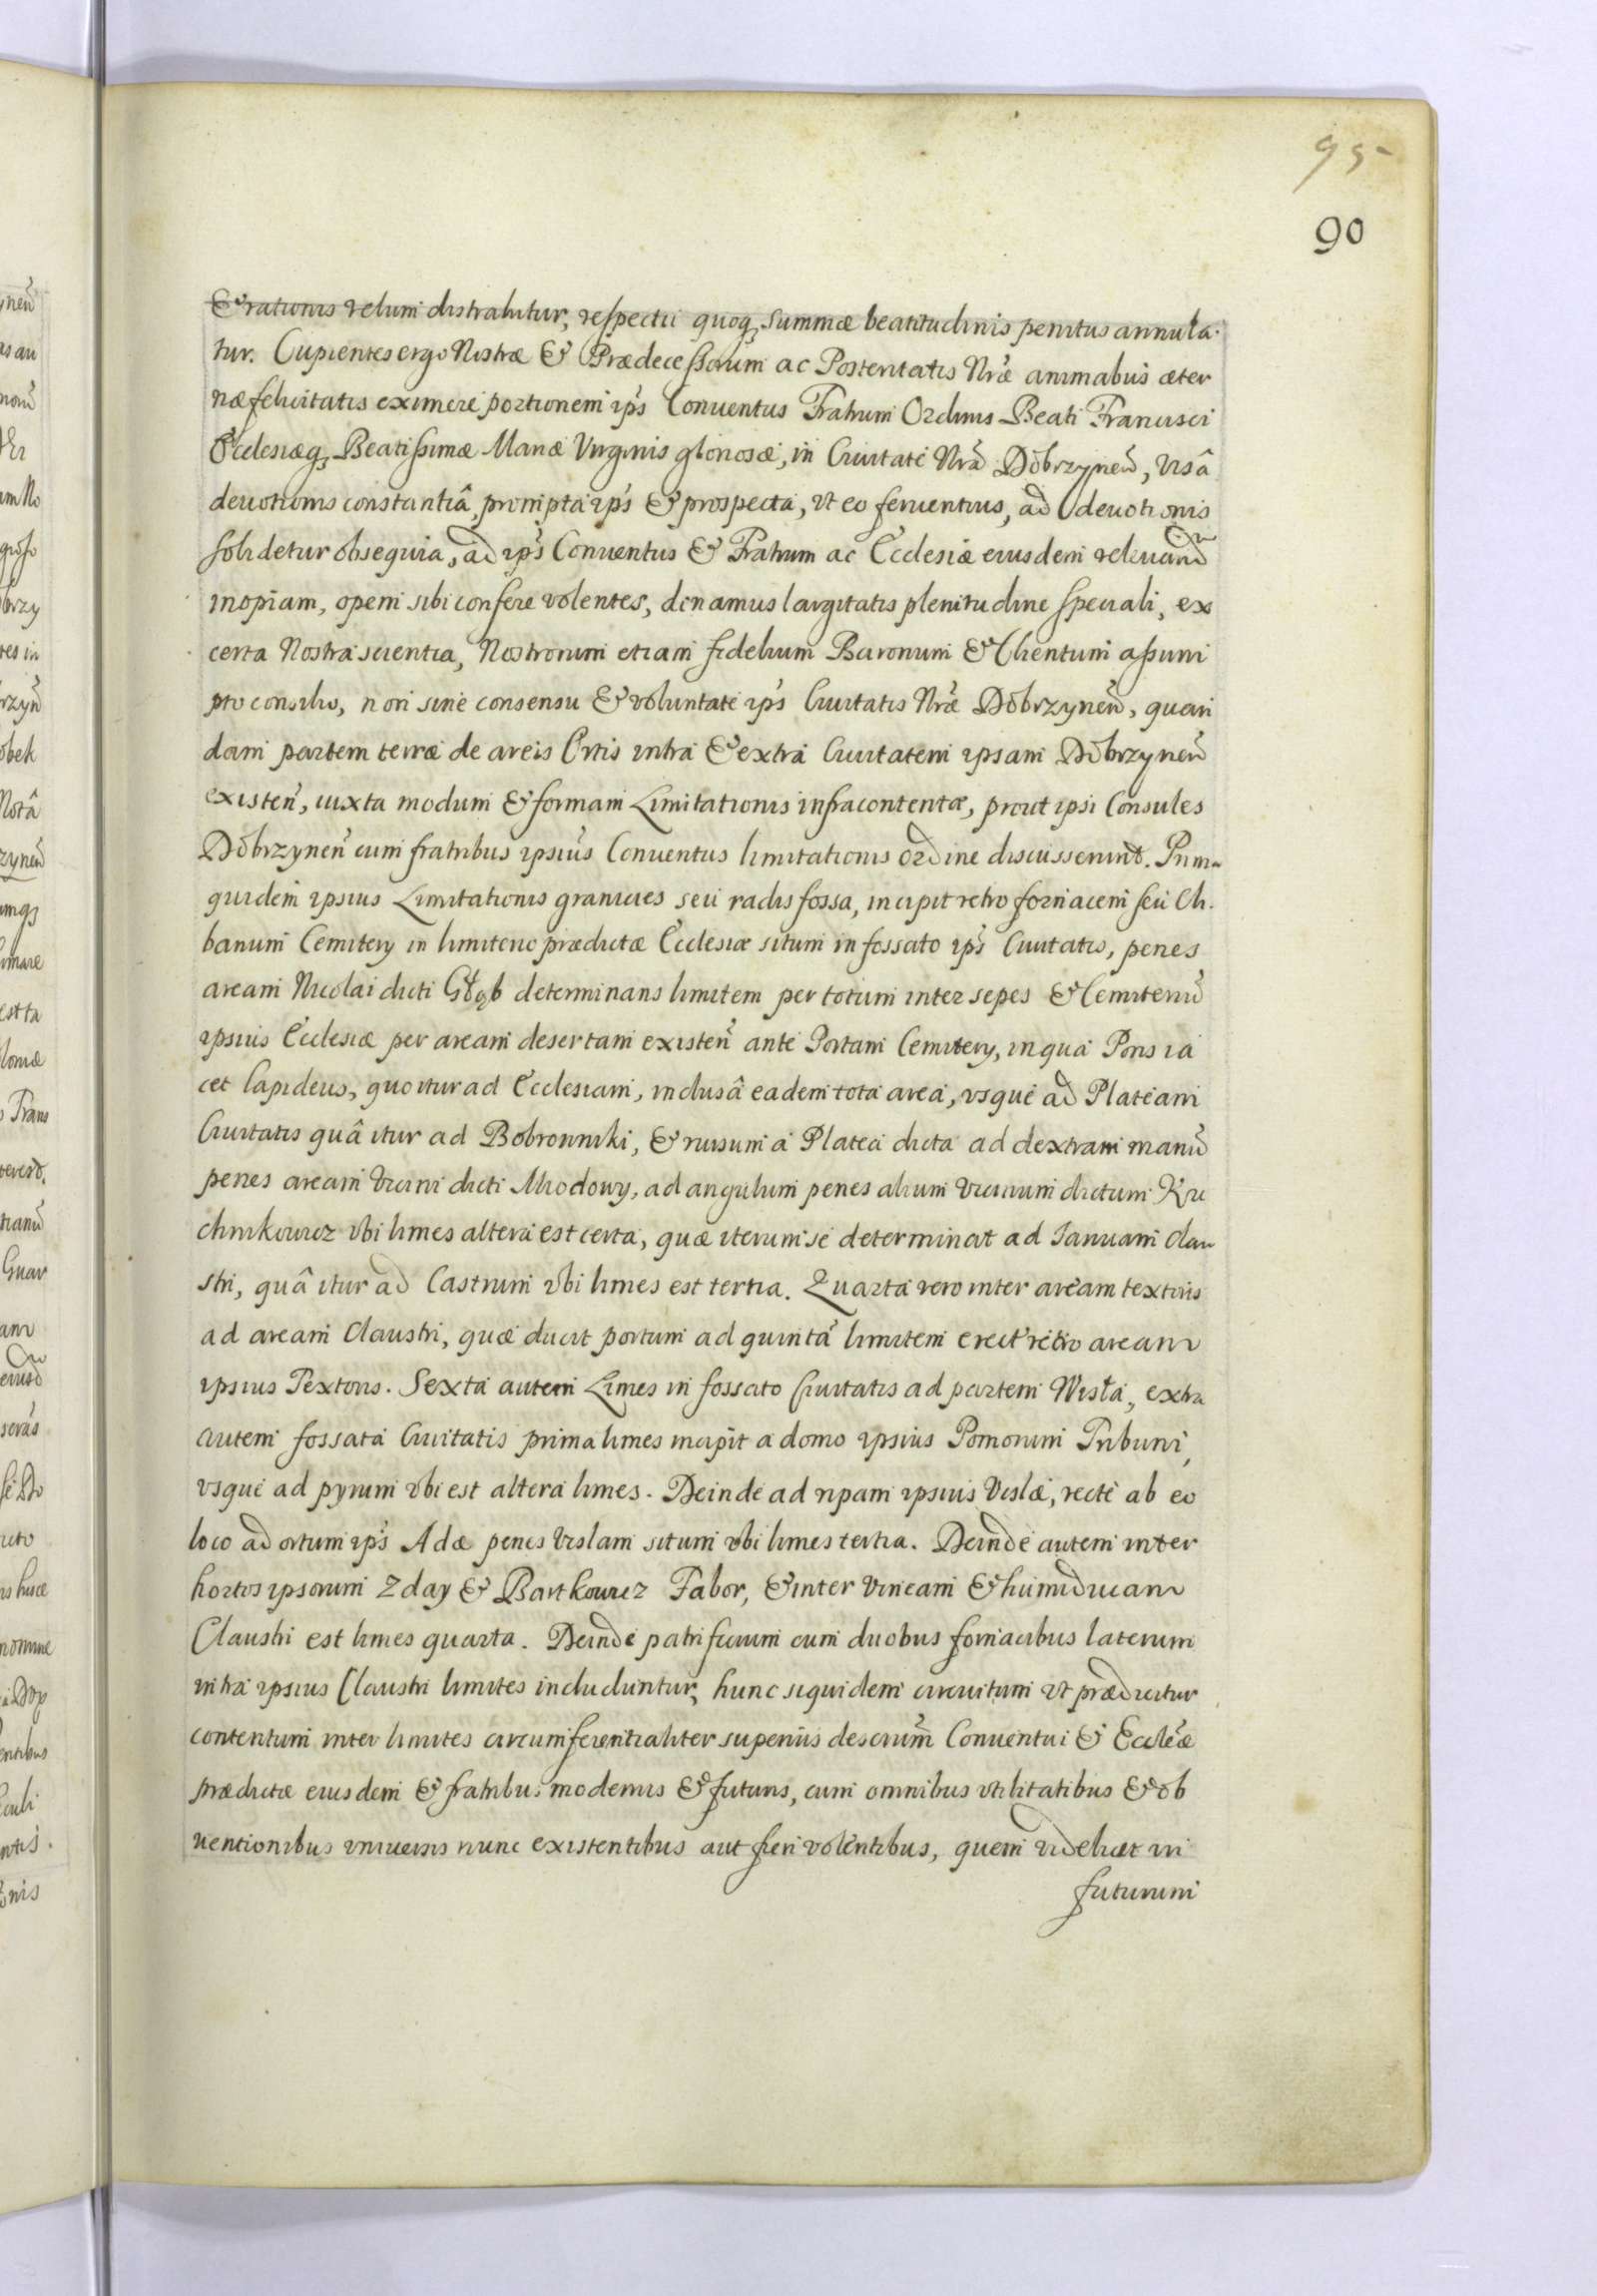 95
90
& rationis velum distrahitur, respectu quoq; summæ beatitudinis penitus annula-
tur. Cupientes ergo Nostræ & Prædecessorum ac Posteritatis Nræ animabus æter
næ felicitatis eximere portionem ips Conuentus Fratrum Ordinis Beati Francisci
Ecclesiæq; Beatissimæ Mariæ Virginis gloriosæ, in Ciuitate Nrã Dobrzyneñ, visâ
deuotionis constantiâ, prompta ips & prospecta, vt eo feruentius, ad deuotionis
solidetur obsequia, ad ips Conuentus & Fratrum ac Ecclesiæ eiusdem releuand
inopiam, opem sibi conferre volentes, donamus largitatis plenitudine speciali, ex
certa Nostra scientia, Nostrorum etiam fidelium Baronum & Clientum assum
pto consilio, non sine consensu & voluntate ips Ciuitatis Nræ Dobrzyneñ, quan
dam partem terræ de areis Ortis intra & extra Ciuitatem ipsam Dobrzyneñ
existeñ, iuxta modum & formam Limitationis infracontentæ, prout ipsi Consules
Dobrzyneñ cum fratribus ipsius Conuentus limitationis ordine discusserunt. Prim-
quidem ipsius Limitationis granicies seu radis fossa, incipit retro fornacem seu Cli-
banum Cemitery in limitetic prædictæ Ecclesiæ situm in fossato ips Ciuitatis, penes
aream Nicolai dicti Głąb determinans limitem per totum inter sepes & Cemiteriũ
ipsius Ecclesiæ per aream desertam existeñ ante Portam Cemitery, in qua Pons ia
cet Lapideus, quo itur ad Ecclesiam, inclusâ eadem tota area, vsque ad Plateam
Ciuitatis quâ itur ad Bobrowniki, & rursum a Platea dicta ad dextram manũ
penes aream Vicini dicti Miodowy, ad angulum penes alium vicinum dictum Ku
chnikowicz vbi limes altera est certa, quæ iterum se determinat ad Ianuam clau
stri, quâ itur ad Castrum vbi limes est tertia. Quarta vero inter aream textoris
ad aream Claustri, quæ ducit portum ad quintã limitem erect retro aream
ipsius Textoris. Sexta autem Limes in fossato Ciuitatis ad partem Wisła, extra
autem fossata Ciuitatis prima limes incipit a domo ipsius Pomorum Tribuni,
vsque ad pyrum vbi est altera limes. Deinde ad ripam ipsius Vislæ, recte ab eo
loco ad ortum ips Adæ penes Vislam situm vbi limes tertia. Deinde autem inter
hortos ipsorum Zday & Bartkowicz Fabor, & inter vineam & humiduicam
Claustri est limes quarta. Deinde patrificium cum duobus fornacibus laterum
intra ipsius Claustri limites includuntur, hunc siquidem circuitum vt prædicitur
contentum inter limites circumferentialiter superius descrium̃ Conuentui & Eccleæ
prædictæ eiusdem & fratribus modernis & futuris, cum omnibus vtilitatibus & ob
uentionibus vniuersis nunc existentibus aut fieri volentibus, quem videlicet in
futurum